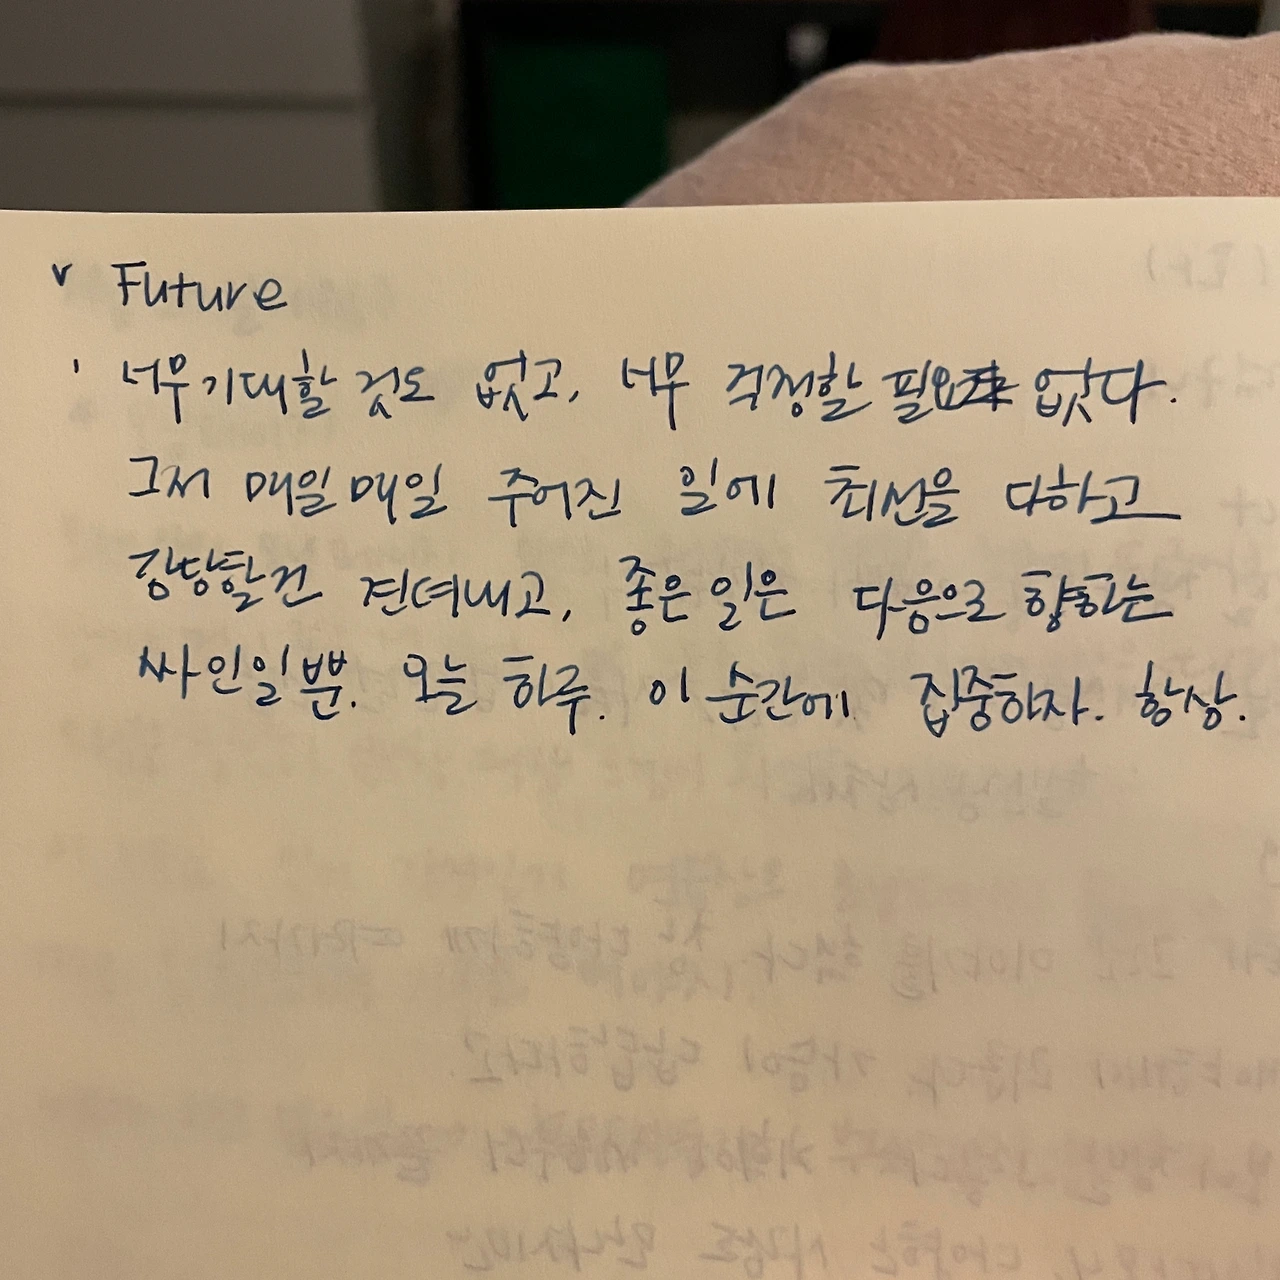 v Future
' 너무 기대할 것도 없고, 너무 걱정할 필요도 없다.
그저 매일매일 주어진 일에 최선을 다하고
감당할건 견뎌내고, 좋은 일은 다음으로 향하는
싸인일 뿐. 오늘 하루. 이 순간에 집중하자. 항상.